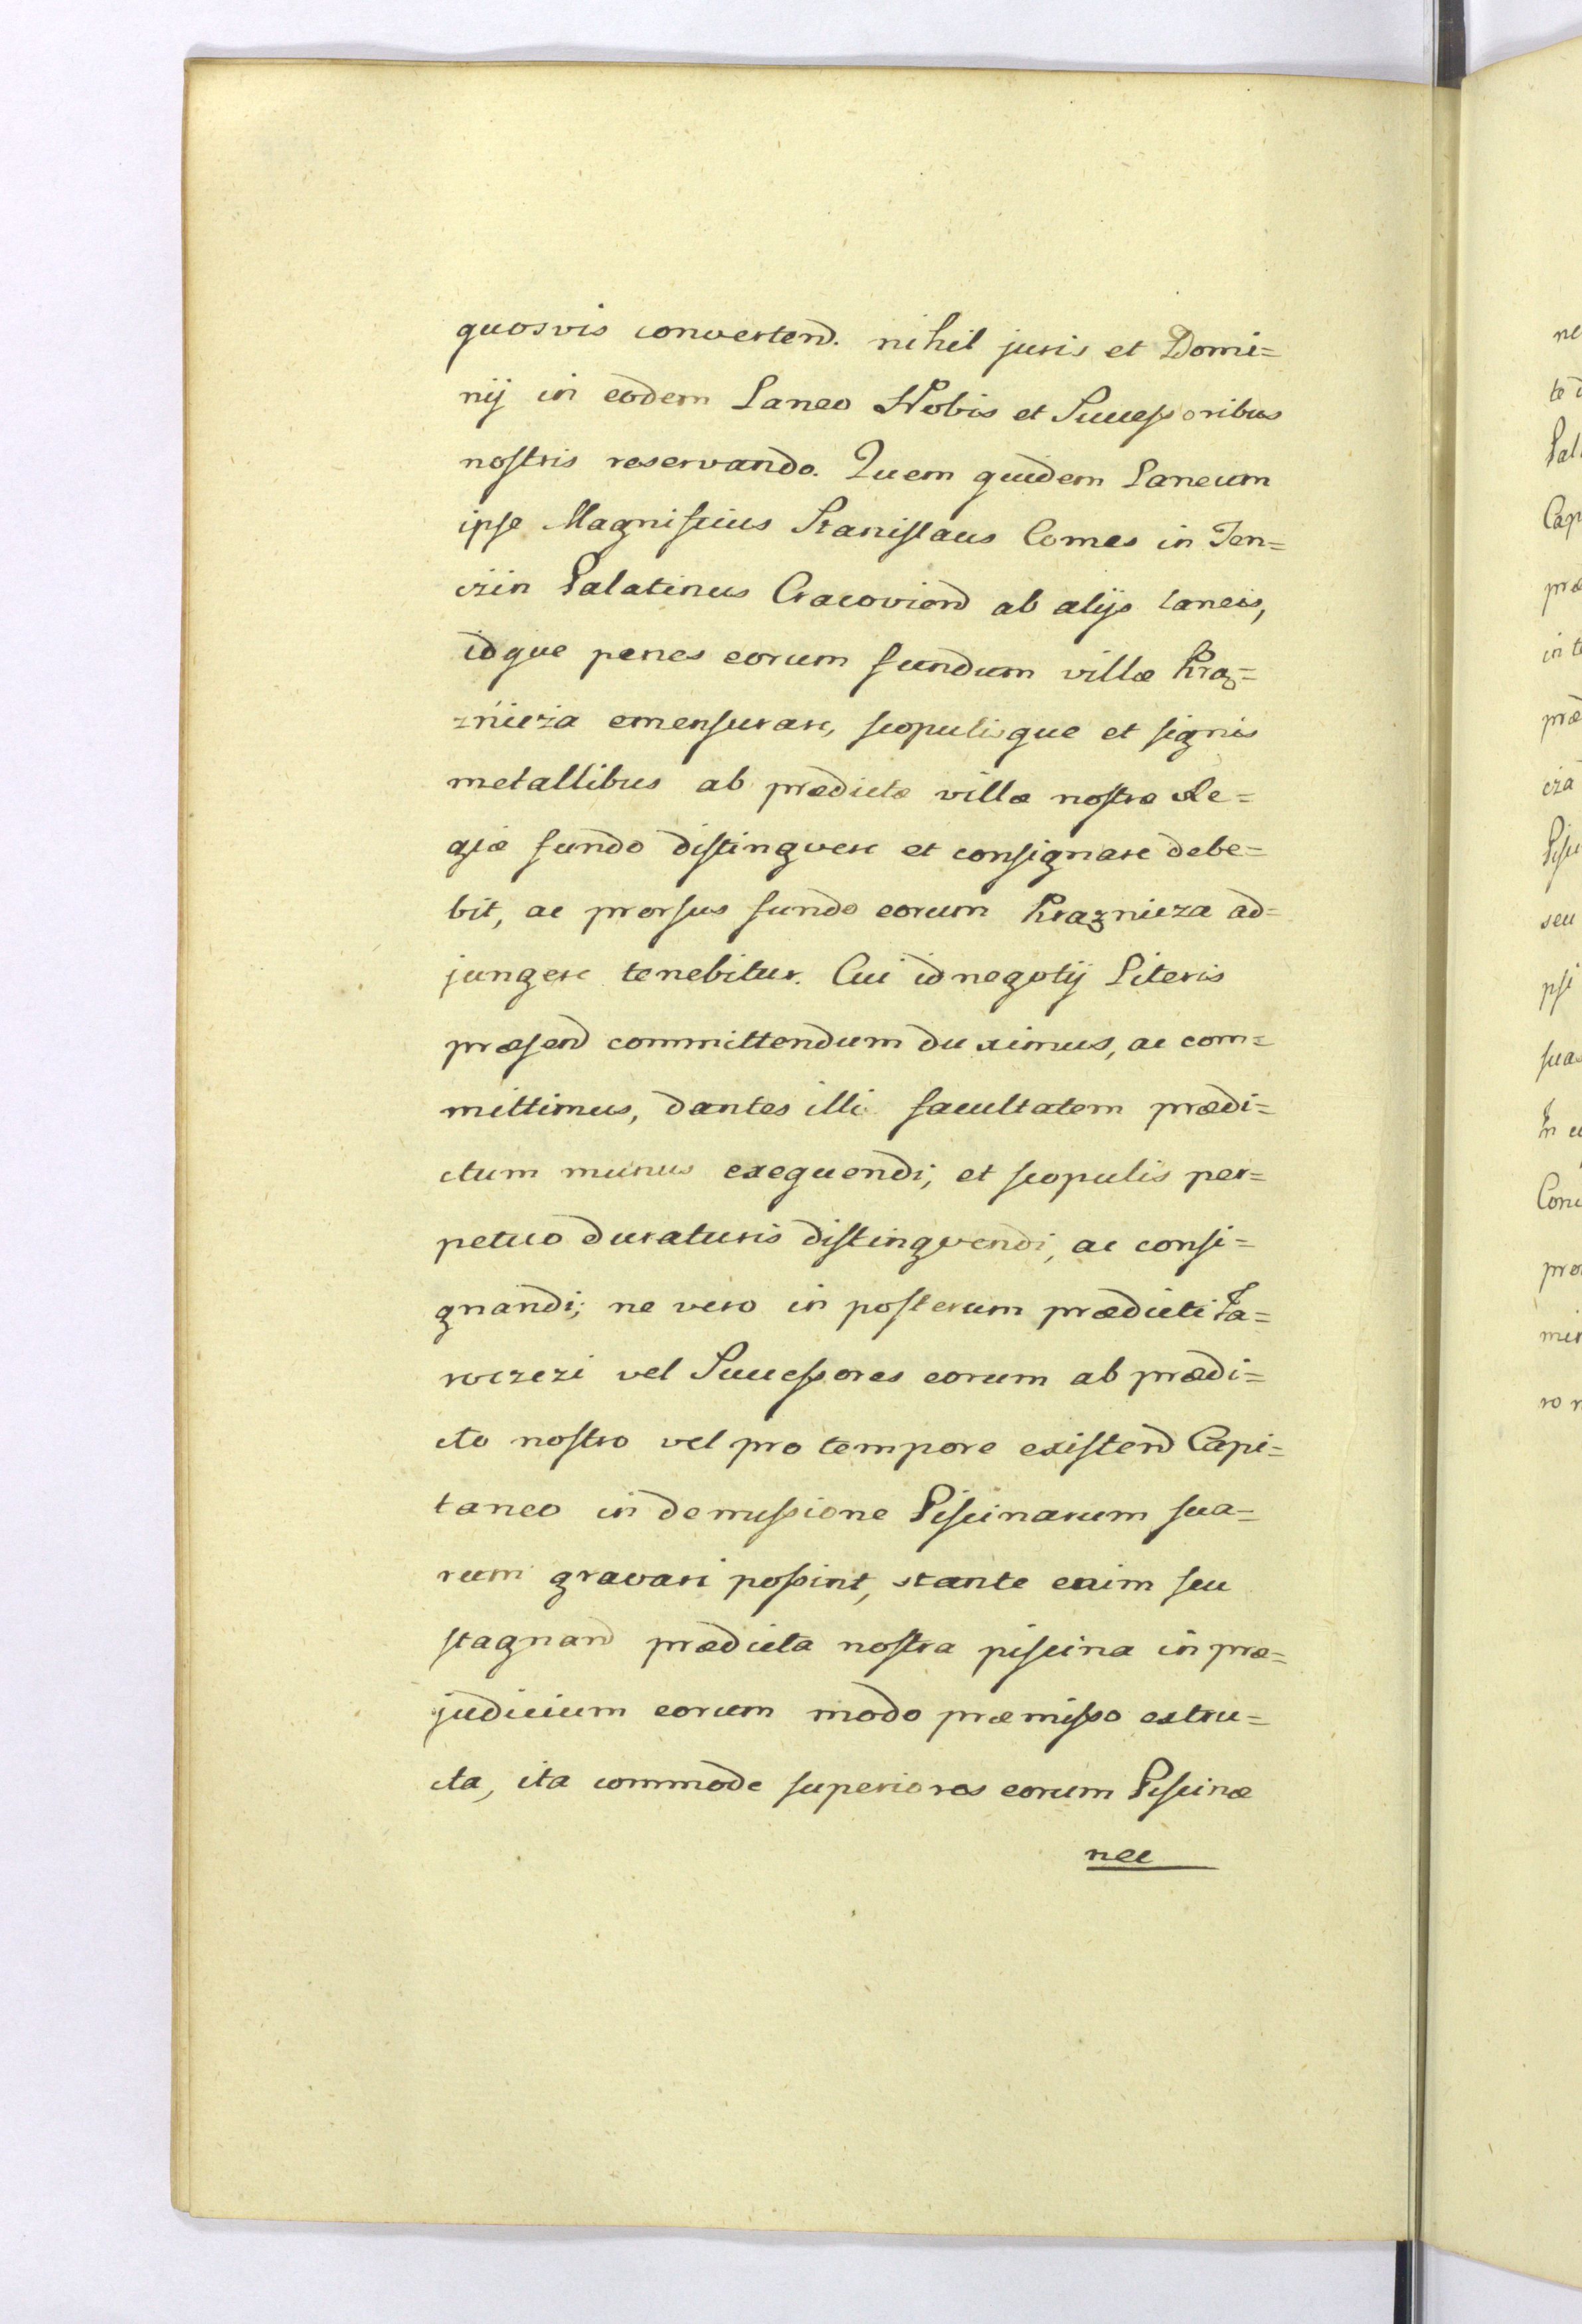 quosvis convertend. nihil juris et Domi=
nij in eodem Laneo Nobis et Successoribus
nostris reservando. Quem quidem Laneum
ipse Magnificus Stanislaus Comes in Ten=
czin Palatinus Cracoviend ab alijs laneis,
idque penes eorum fundum villæ Kraz=
znicza emensurare, scopulisque et signis
metallibus ab prædictæ villæ nostræ Re=
giæ fundo distingvere et consignare debe=
bit, ac prorsus fundo eorum Kraznicza ad=
jungere tenebitur. Cui id negotij Literis
præsend committendum duximus, ac com=
mittimus, dantes illi facultatem prædi=
ctum munus exequendi, et scopulis per=
petuo duraturis distingvendi, ac consi=
gnandi; ne vero in posterum prædicti Ja=
wczezi vel Successores eorum ab prædi=
cto nostro vel pro tempore existend Capi=
taneo in demissione Piscinarum sua=
rum gravari possint, stante enim seu
stagnand prædicta nostra piscina in præ=
judicium eorum modo præmisso extru=
cta, ita commode superiores eorum Piscinæ
nec
ne
te d
Pal
Cap
præ
in t
præ
cza
Pisci
seu
psi
suas
In
Conc
pro
mis
ro n